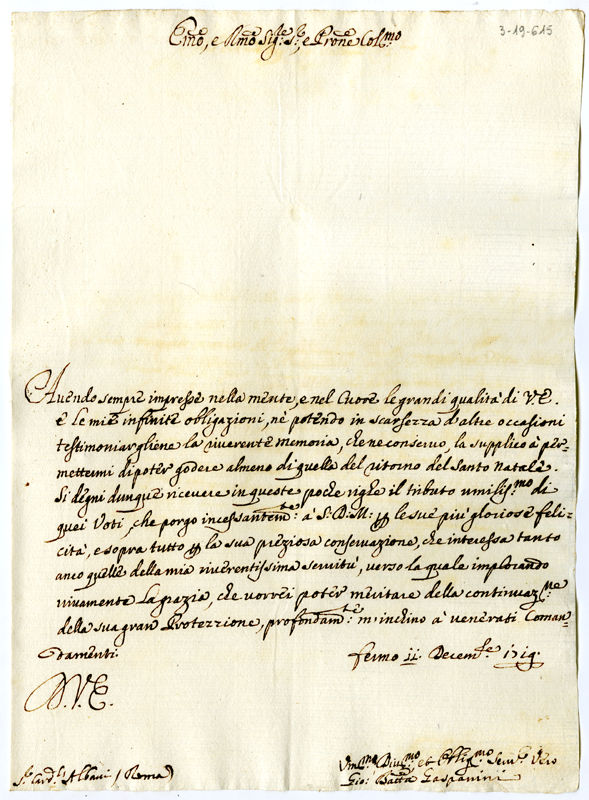 Emo, e Rmo Sig:re S:r, e Prone Col:mo
3-19-615
Auendo sempre impresse nella mente, e nel Cuore le grandi qualità di V.E.
e le mie infinite obligazioni, nè potendo in scarsezza d'altre occasioni
testimoniargliene la riuerente memoria, che ne conseruo, la supplico à per-
mettermi di poter godere almeno di quella del ritorno del Santo Natale.
Si degni dunque riceuere in queste poche righe il tributo umilis:mo di
quei Voti, che porgo incessantem:te à S.D.M: p le sue più gloriose feli-
cità, e sopra tutto p la sua preziosa conseruazione, che interessa tanto
anco quelle della mia riuerentissima seruitù, verso la quale implorando
viuamente la grazia, che vorrei poter meritare della continuaz:ne
della sua gran Protezzione, profondam:te m'inchino à venerati Coman-
damenti.
Fermo 11. Decem:re 1719.
D.V.E.
S:r Card:l Albani (Roma)
Um:mo Diu:mo et Oblig:mo Seru:re Vero
Gio: Batta Gasparini